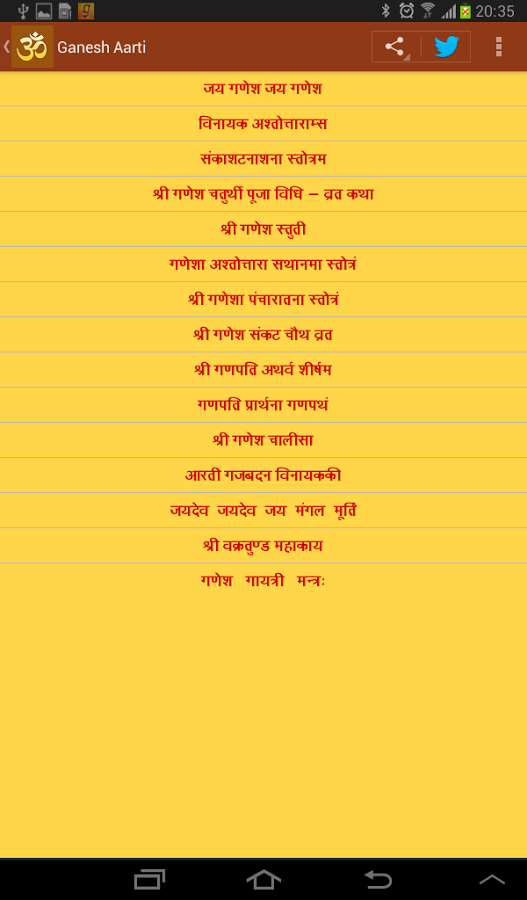 20:35
Ganesh Aarti
जय गणेश जय गणेश
विनायक अश्तोत्ताराम्स
संकाशटनाशना स्तोत्रम
श्री गणेश चतुर्थी पूजा विधि – व्रत कथा
श्री गणेश स्तुती
गणेशा अश्तोत्तारा सथानमा स्तोत्रं
श्री गणेशा पंचारातना स्तोत्रं
श्री गणेश संकट चौथ व्रत
श्री गणपति अथर्व शीर्षम
गणपति प्रार्थना गणपथं
श्री गणेश चालीसा
आरती गजबदन विनायककी
जयदेव जयदेव जय मंगल मूर्ति
श्री वक्रतुण्ड महाकाय
गणेश गायत्री मन्त्रः